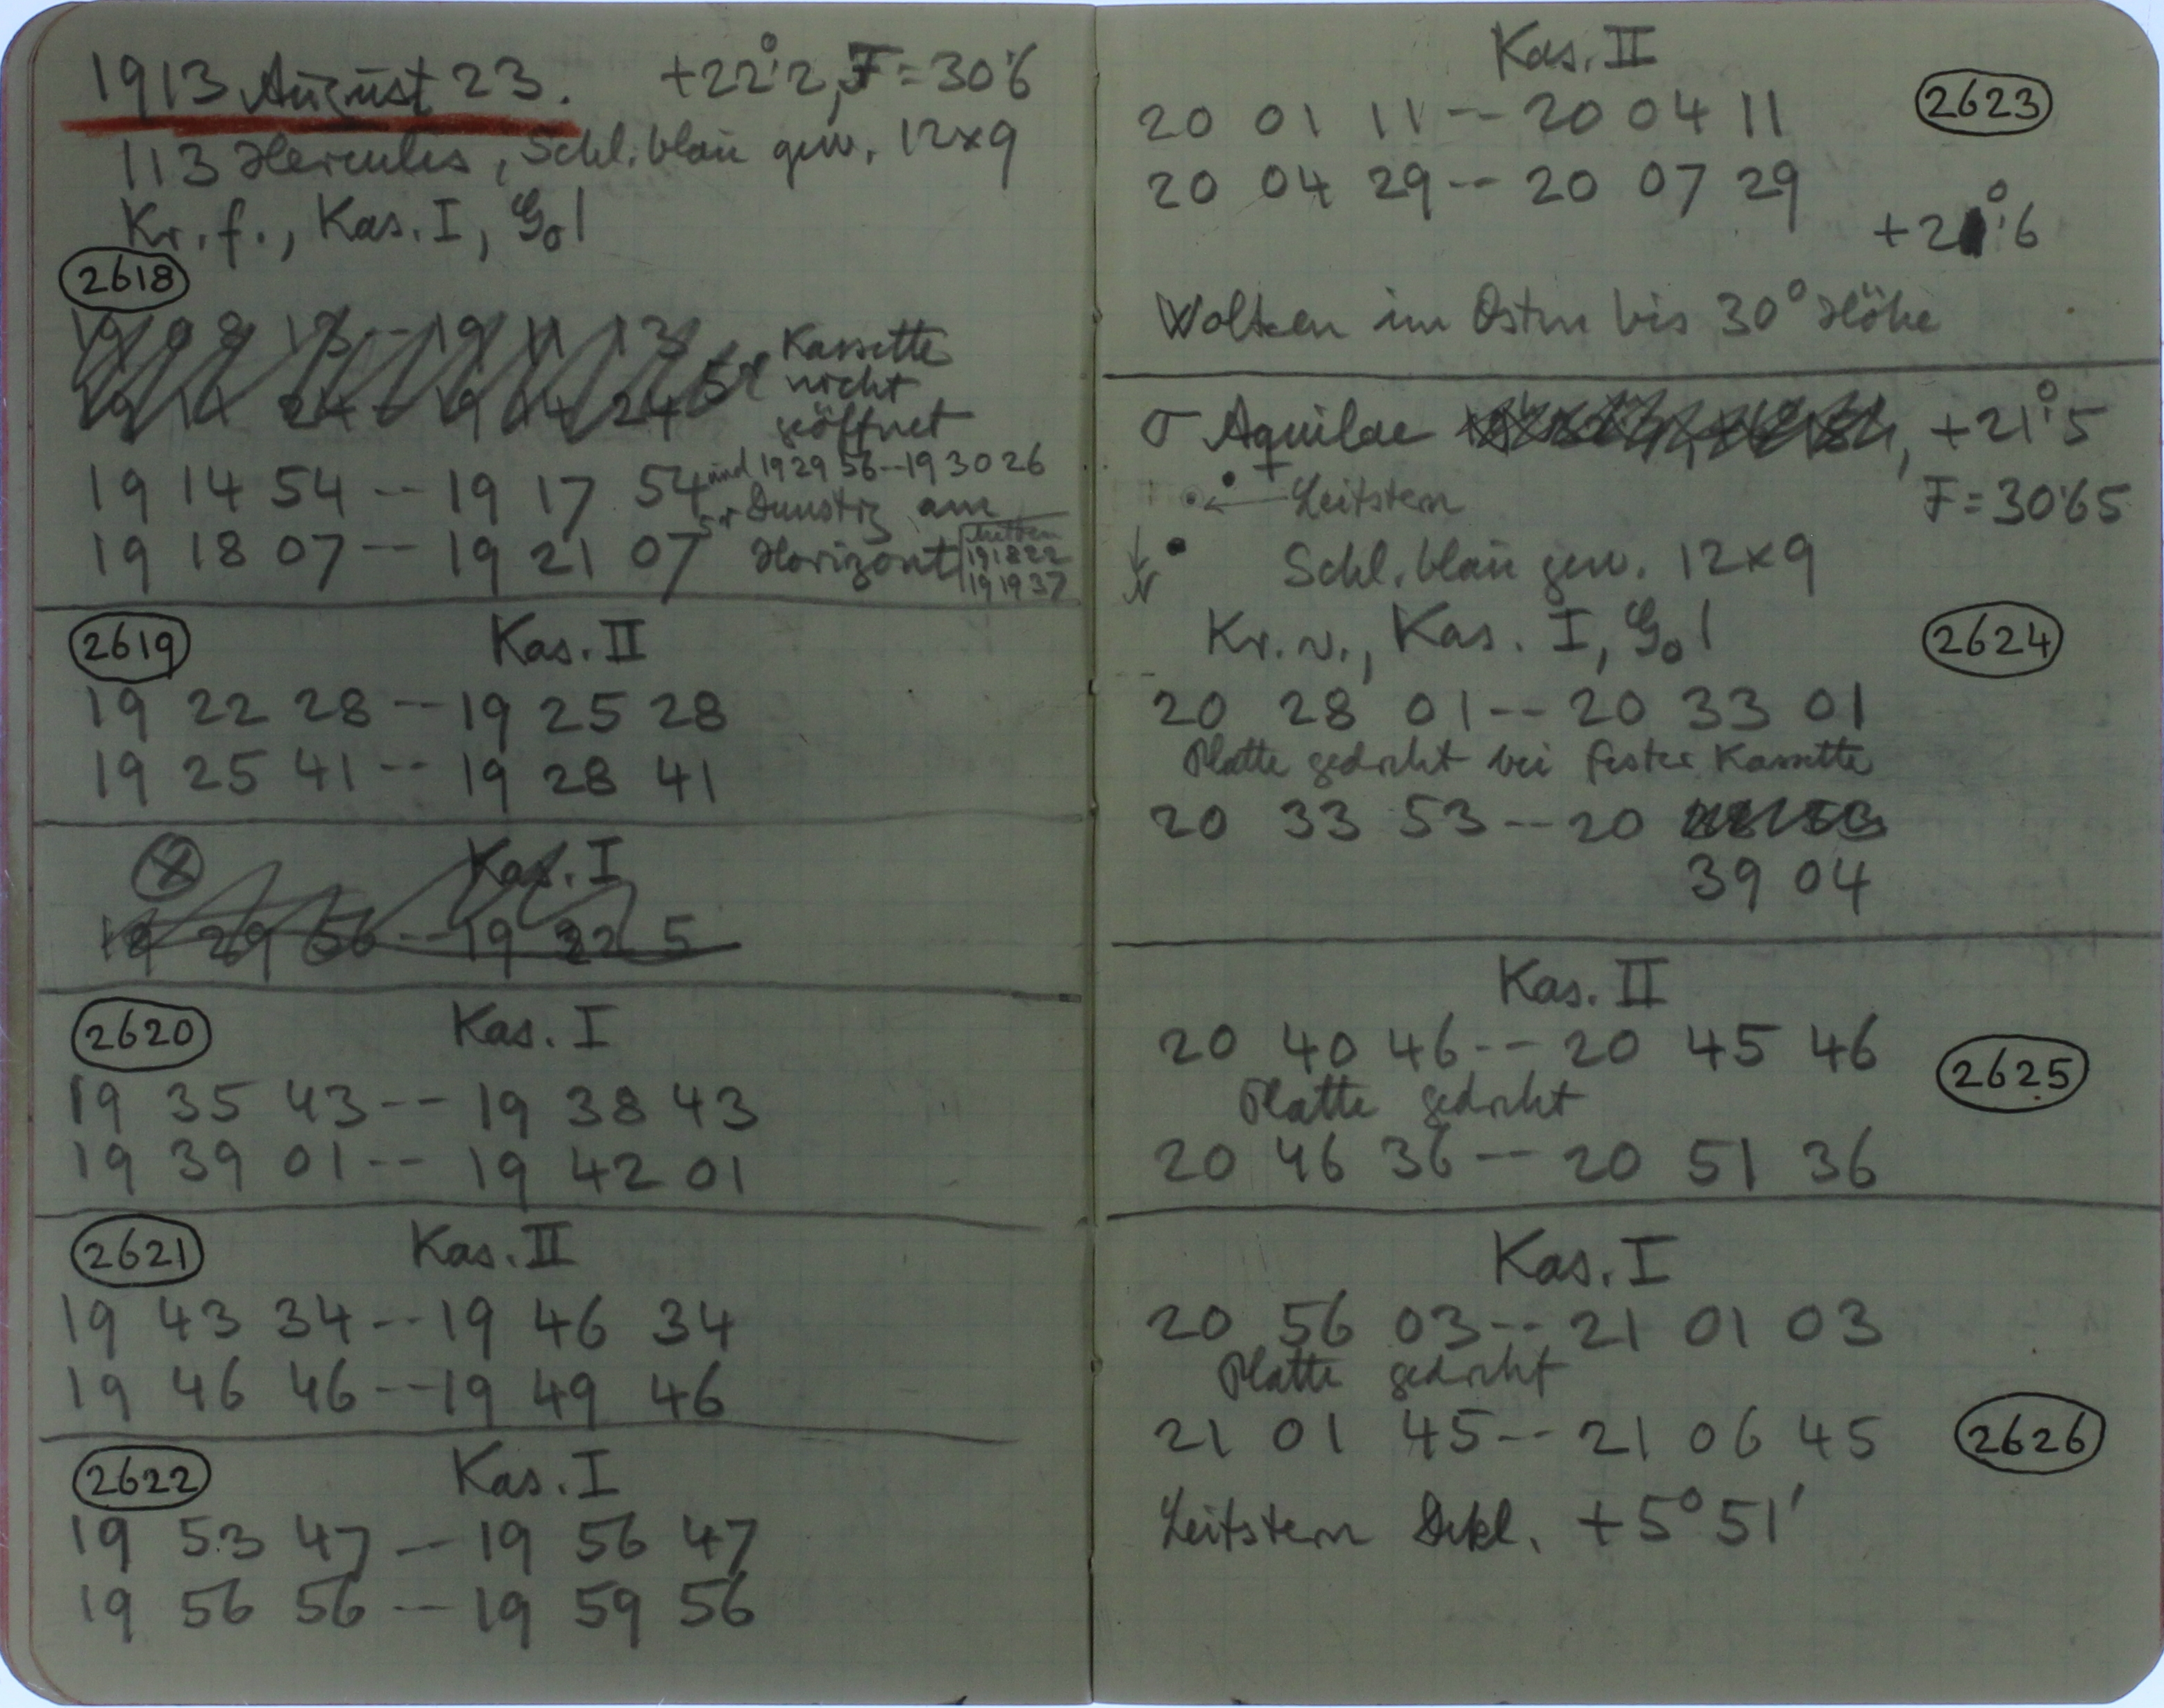 1913 August 23. +22°.2, F = 30.6
113 Hercules, Schl. blau gew. 12×9
Kr. f., Kas. I, G₀ 1
2618
19 08 13 -- 19 11 13
Kassette
nicht
geöffnet
19 11 24 -- 19 14 24
19 14 54 -- 19 17 54 und 19 29 56 -- 19 30 26
Dunstig am
19 18 07 -- 19 21 07 Horizont
Mitten
19 18 22
19 19 37
2619 Kas. II
19 22 28 -- 19 25 28
19 25 41 -- 19 28 41
Kas. I
19 29 56 -- 19 32 5
2620 Kas. I
19 35 43 -- 19 38 43
19 39 01 -- 19 42 01
2621 Kas. II
19 43 34 -- 19 46 34
19 46 46 -- 19 49 46
2622 Kas. I
19 53 47 -- 19 56 47
19 56 56 -- 19 59 56
Kas. II
20 01 11 -- 20 04 11 2623
20 04 29 -- 20 07 29
+21°.6
Wolken im Osten bis 30° Höhe
σ Aquilae , +21°.5
Leitstern F = 30.65
N Schl. blau gew. 12×9
Kr. v., Kas. I, G₀ 1 2624
20 28 01 -- 20 33 01
Platte gedreht bei fester Kassette
20 33 53 -- 20
39 04
Kas. II
20 40 46 -- 20 45 46 2625
Platte gedreht
20 46 36 -- 20 51 36
Kas. I
20 56 03 -- 21 01 03
Platte gedreht
21 01 45 -- 21 06 45 2626
Leitstern Dekl. +5° 51'